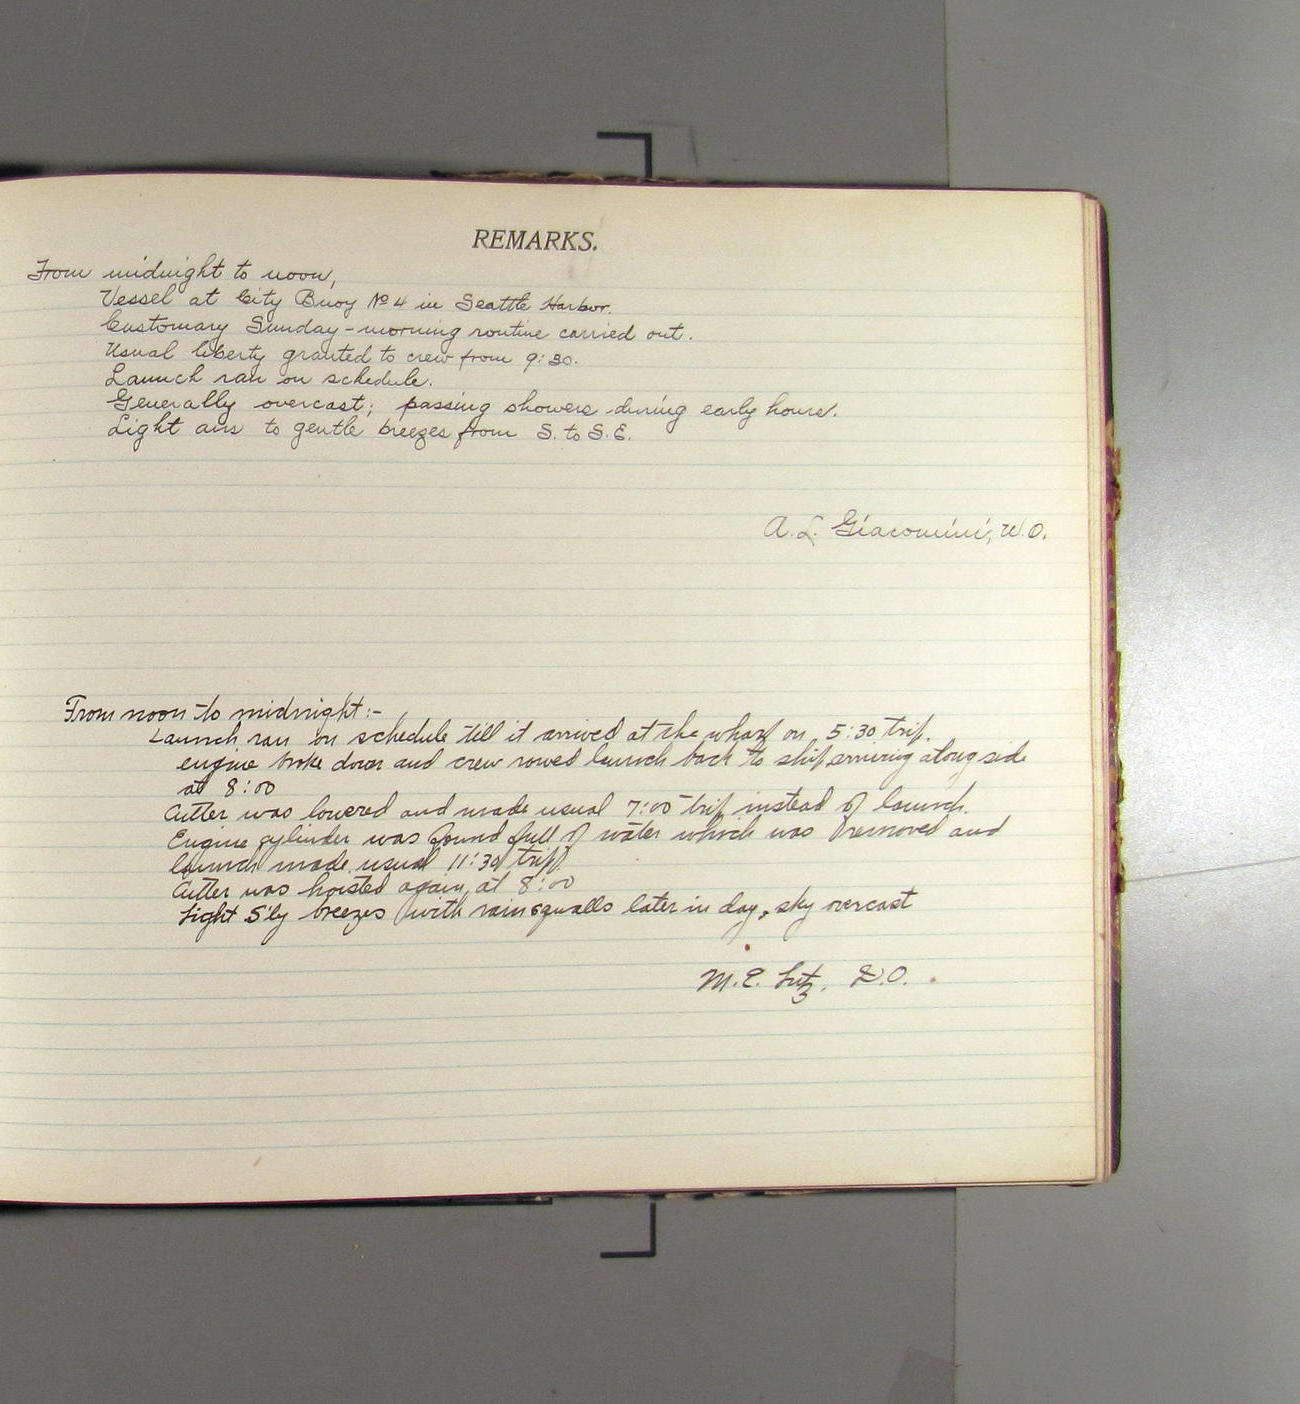 REMARKS.
From midnight to noon,
Vessel at City Buoy No 4 in Seattle Harbor.
Customary Sunday-morning routine carried out.
Usual liberty granted to crew from 9:30.
Launch ran on schedule.
Generally overcast; passing showers during early hours.
Light airs to gentle breezes from S. to S.E.
A. L. Giacomini, W.O.
From noon to midnight:-
Launch ran on schedule till it arrived at the wharf on 5:30 trip.
engine broke down and crew rowed launch back to ship, arriving along side
at 8:00
Cutter was lowered and made usual 7:00 trip instead of launch.
Engine cylinder was found full of water which was removed and
launch made usual 11:30 trip.
Cutter was hoisted again at 8:00
Light S'ly breezes with rain squalls later in day, sky overcast
M. E. Lutz,